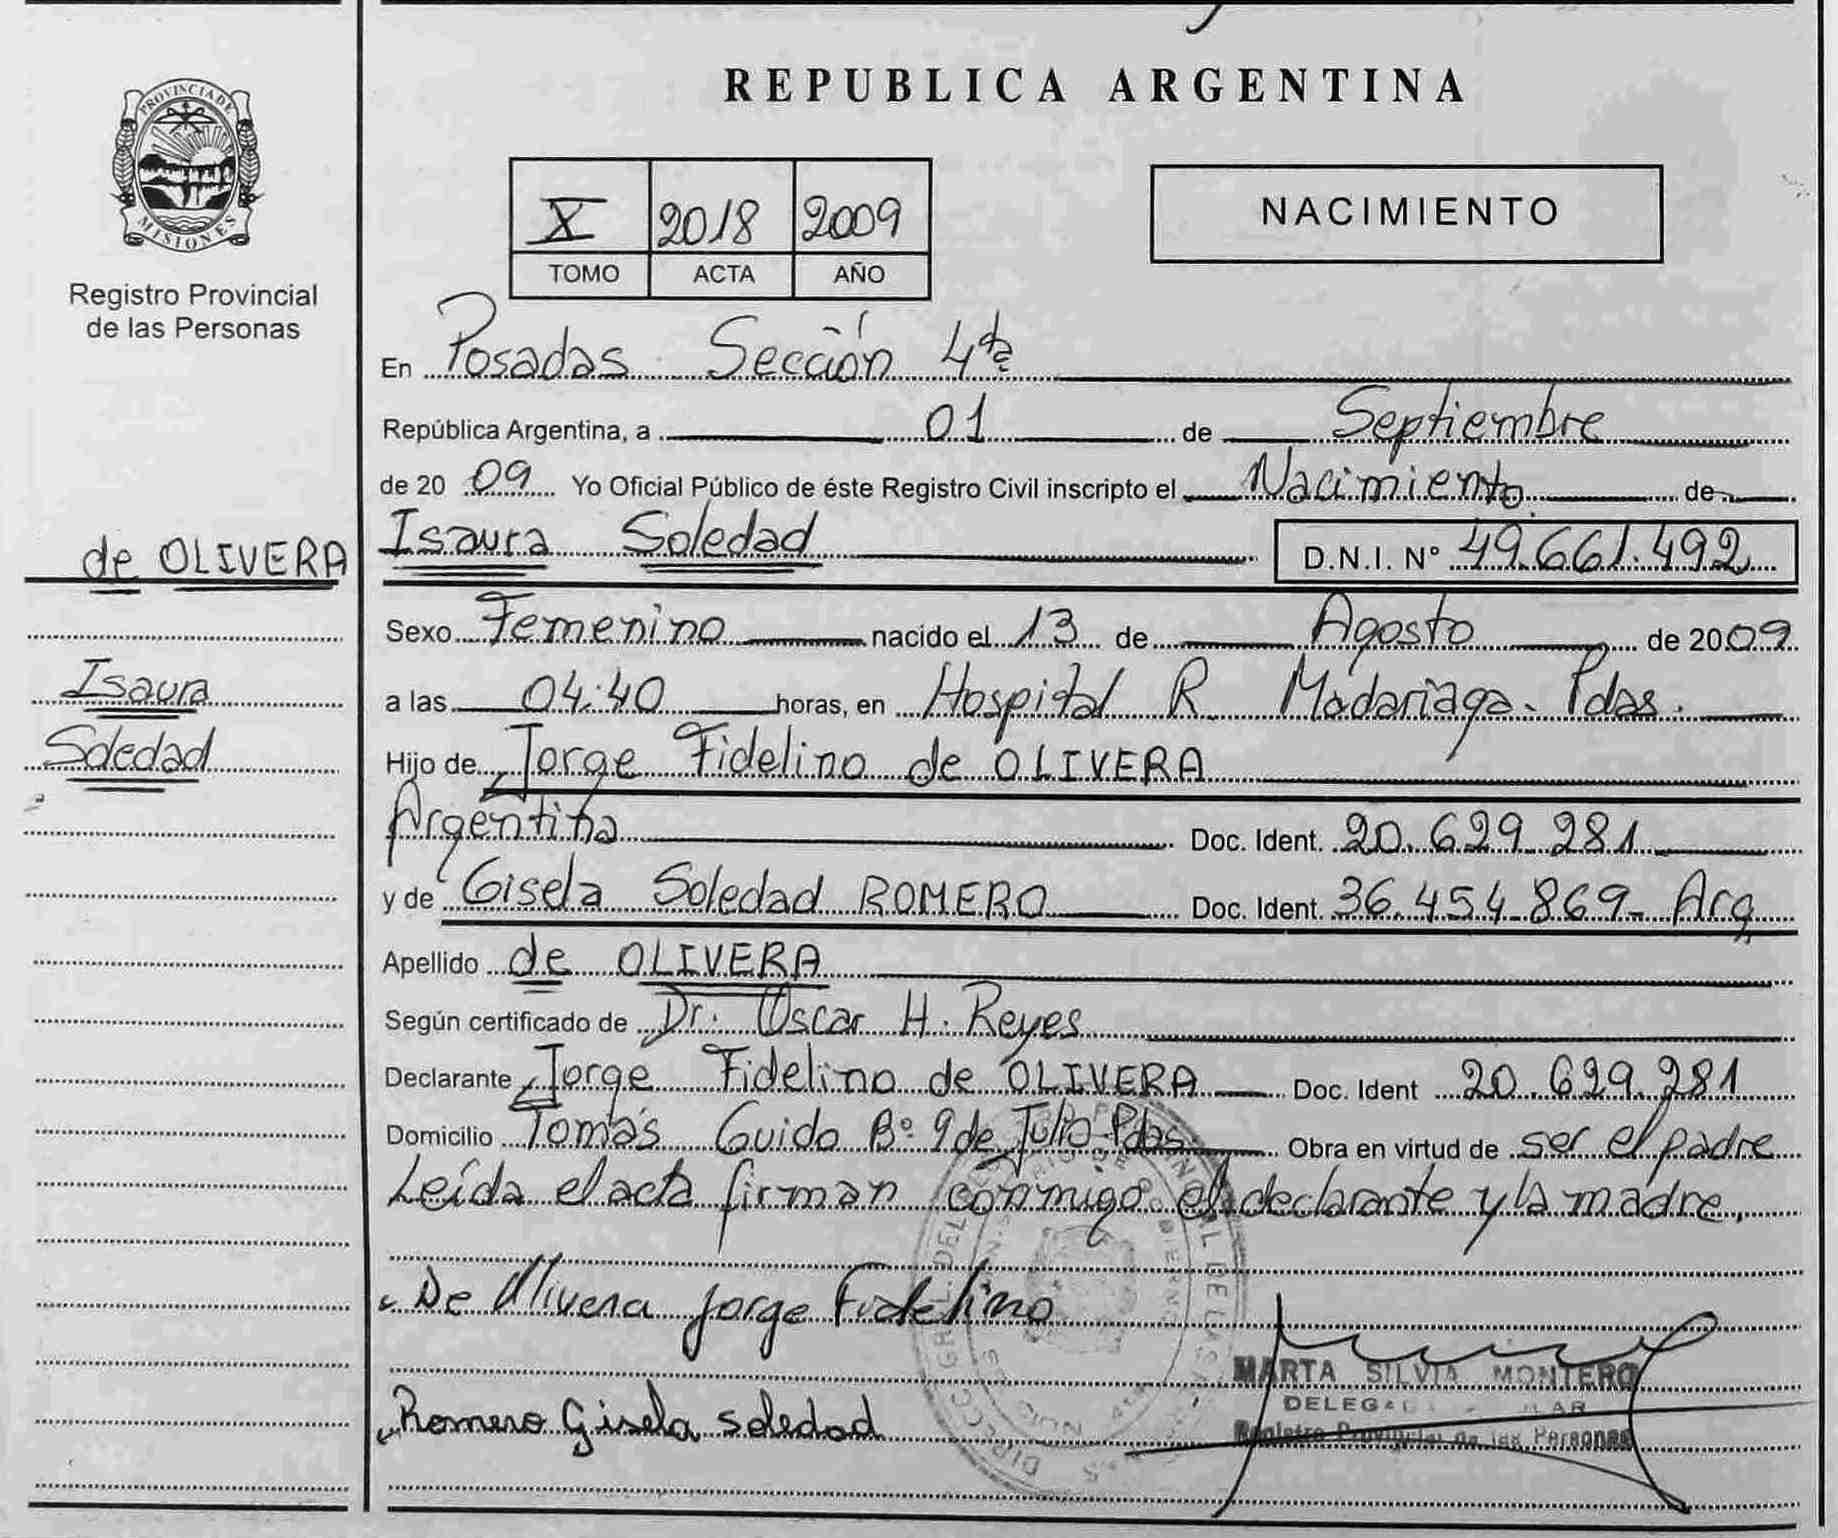 REPUBLICA ARGENTINA
PROVINCIA DE
MISIONES
Registro Provincial
de las Personas
X 2018 2009
TOMO ACTA AÑO
NACIMIENTO
En Posadas Sección 4ta
República Argentina, a 01 de Septiembre
de 2009 Yo Oficial Público de éste Registro Civil inscripto el Nacimiento de
de OLIVERA
Isaura
Soledad
Isaura Soledad D.N.I. N° 49.661.492
Sexo Femenino nacido el 13 de Agosto de 2009
a las 04:40 horas, en Hospital R. Madariaga. Pdas.
Hijo de Jorge Fidelino de OLIVERA
Argentina Doc. Ident. 20.629.281
y de Gisela Soledad ROMERO Doc. Ident. 36.454.869- Arg
Apellido de OLIVERA
Según certificado de Dr. Oscar H. Reyes
Declarante Jorge Fidelino de OLIVERA Doc. Ident 20.629.281
Domicilio Tomás Guido B° 9 de Julio-Pdas Obra en virtud de ser el padre
Leída el acta firman conmigo el declarante y la madre.
De Olivera Jorge Fidelino
Romero Gisela Soledad
MARTA SILVIA MONTERO
Registro Provincial de las Personas